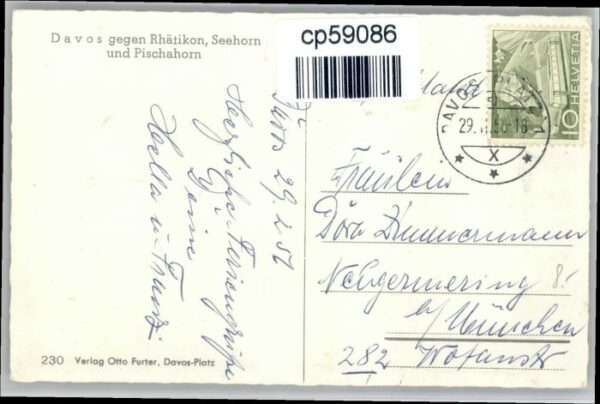 Davos gegen Rhätikon, Seehorn
und Pischahorn
cp59086
HELVETIA
10
DAVOS PLATZ
29. 50-18
X
Davos 29.
Herzliche Feriengrüße
Deine
Hella u. Franzi
Fräulein
Dora Zimmermann
Neugermering 8
b/ München
282 Wotanstr
230 Verlag Otto Furter, Davos-Platz